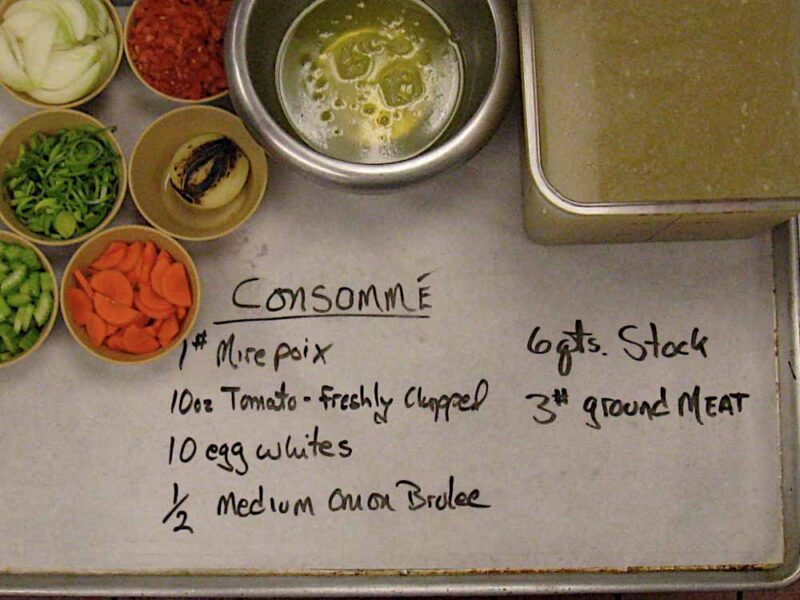 CONSOMMÉ
1# Mirepoix
10oz Tomato - Freshly Chopped
10 egg whites
1/2 Medium Onion Brulee
6 qts. Stock
3# ground MEAT